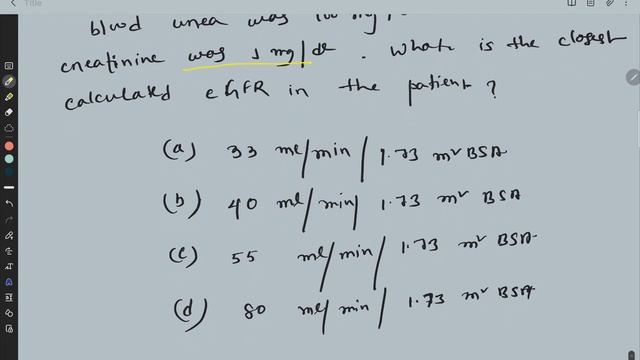 Title
blood urea was 100 mg/
creatinine was 1 mg/dl. What is the closest
calculated eGFR in the patient?
(a) 33 ml/min/1.73 m² BSA
(b) 40 ml/min/1.73 m² BSA
(c) 55 ml/min/1.73 m² BSA
(d) 80 ml/min/1.73 m² BSA